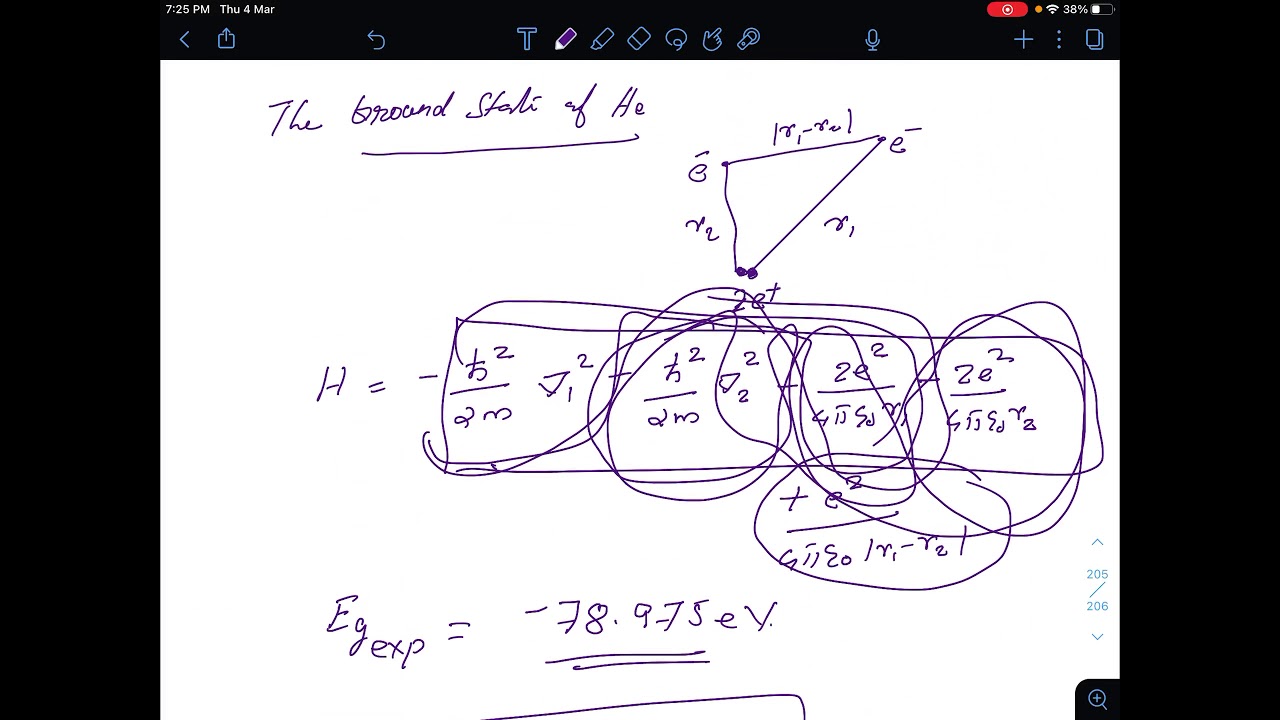 7:25 PM Thu 4 Mar
38%
T
The Ground State of He
|r₁-r₂|
e⁻
e⁻
r₂
r₁
2e⁺
H = - ħ²/2m ∇₁² - ħ²/2m ∇₂² - 2e²/4πε₀r₁ - 2e²/4πε₀r₂
+ e²/4πε₀|r₁-r₂|
Eg exp = -78.975 eV.
205
206